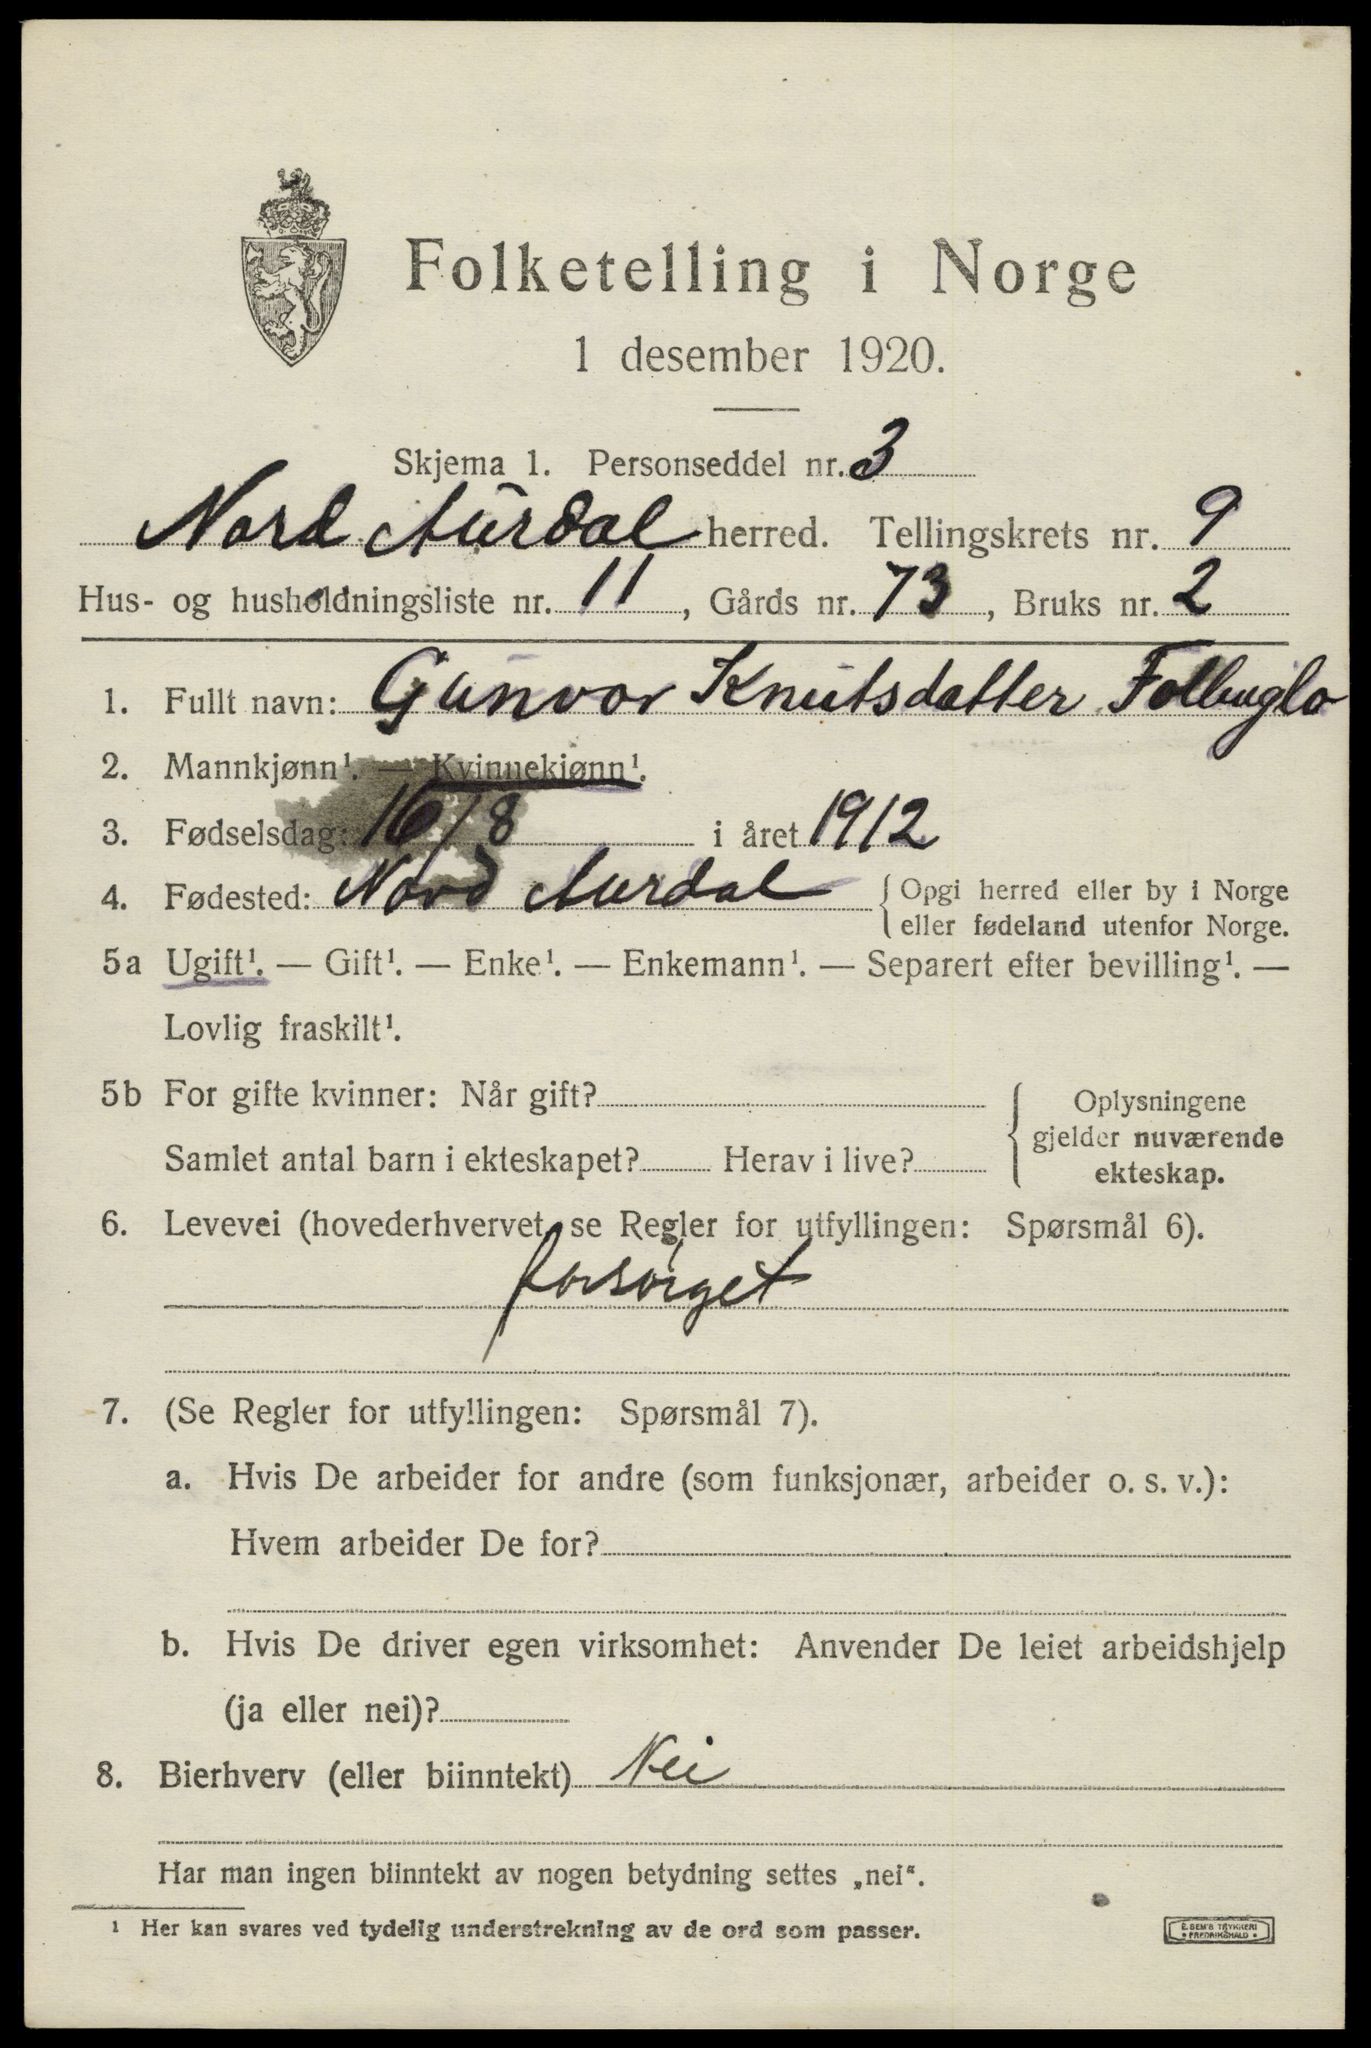 Folketelling i Norge
1 desember 1920.
Skjema 1. Personseddel nr. 3
Nord Aurdal herred. Tellingskrets nr. 9
Hus- og husholdningsliste nr. 11, Gårds nr. 73, Bruks nr. 2
1. Fullt navn: Gunvor Knutsdatter
2. Mannkjønn¹. — Kvinnekjønn¹.
3. Fødselsdag: 16/8 i året 1912
4. Fødested: Nord Aurdal { Opgi herred eller by i Norge
eller fødeland utenfor Norge.
5a Ugift¹. — Gift¹. — Enke¹. — Enkemann¹. — Separert efter bevilling¹. —
Lovlig fraskilt¹.
5b For gifte kvinner: Når gift?
Samlet antal barn i ekteskapet? Herav i live?
{ Oplysningene
gjelder nuværende
ekteskap.
6. Levevei (hovederhvervet, se Regler for utfyllingen: Spørsmål 6).
forsørget
7. (Se Regler for utfyllingen: Spørsmål 7).
a. Hvis De arbeider for andre (som funksjonær, arbeider o. s. v.):
Hvem arbeider De for?
b. Hvis De driver egen virksomhet: Anvender De leiet arbeidshjelp
(ja eller nei)?
8. Bierhverv (eller biinntekt) Nei
Har man ingen biinntekt av nogen betydning settes „nei“.
¹ Her kan svares ved tydelig understrekning av de ord som passer.
E. SEM'S TRYKKERI
• FREDRIKSHALD •